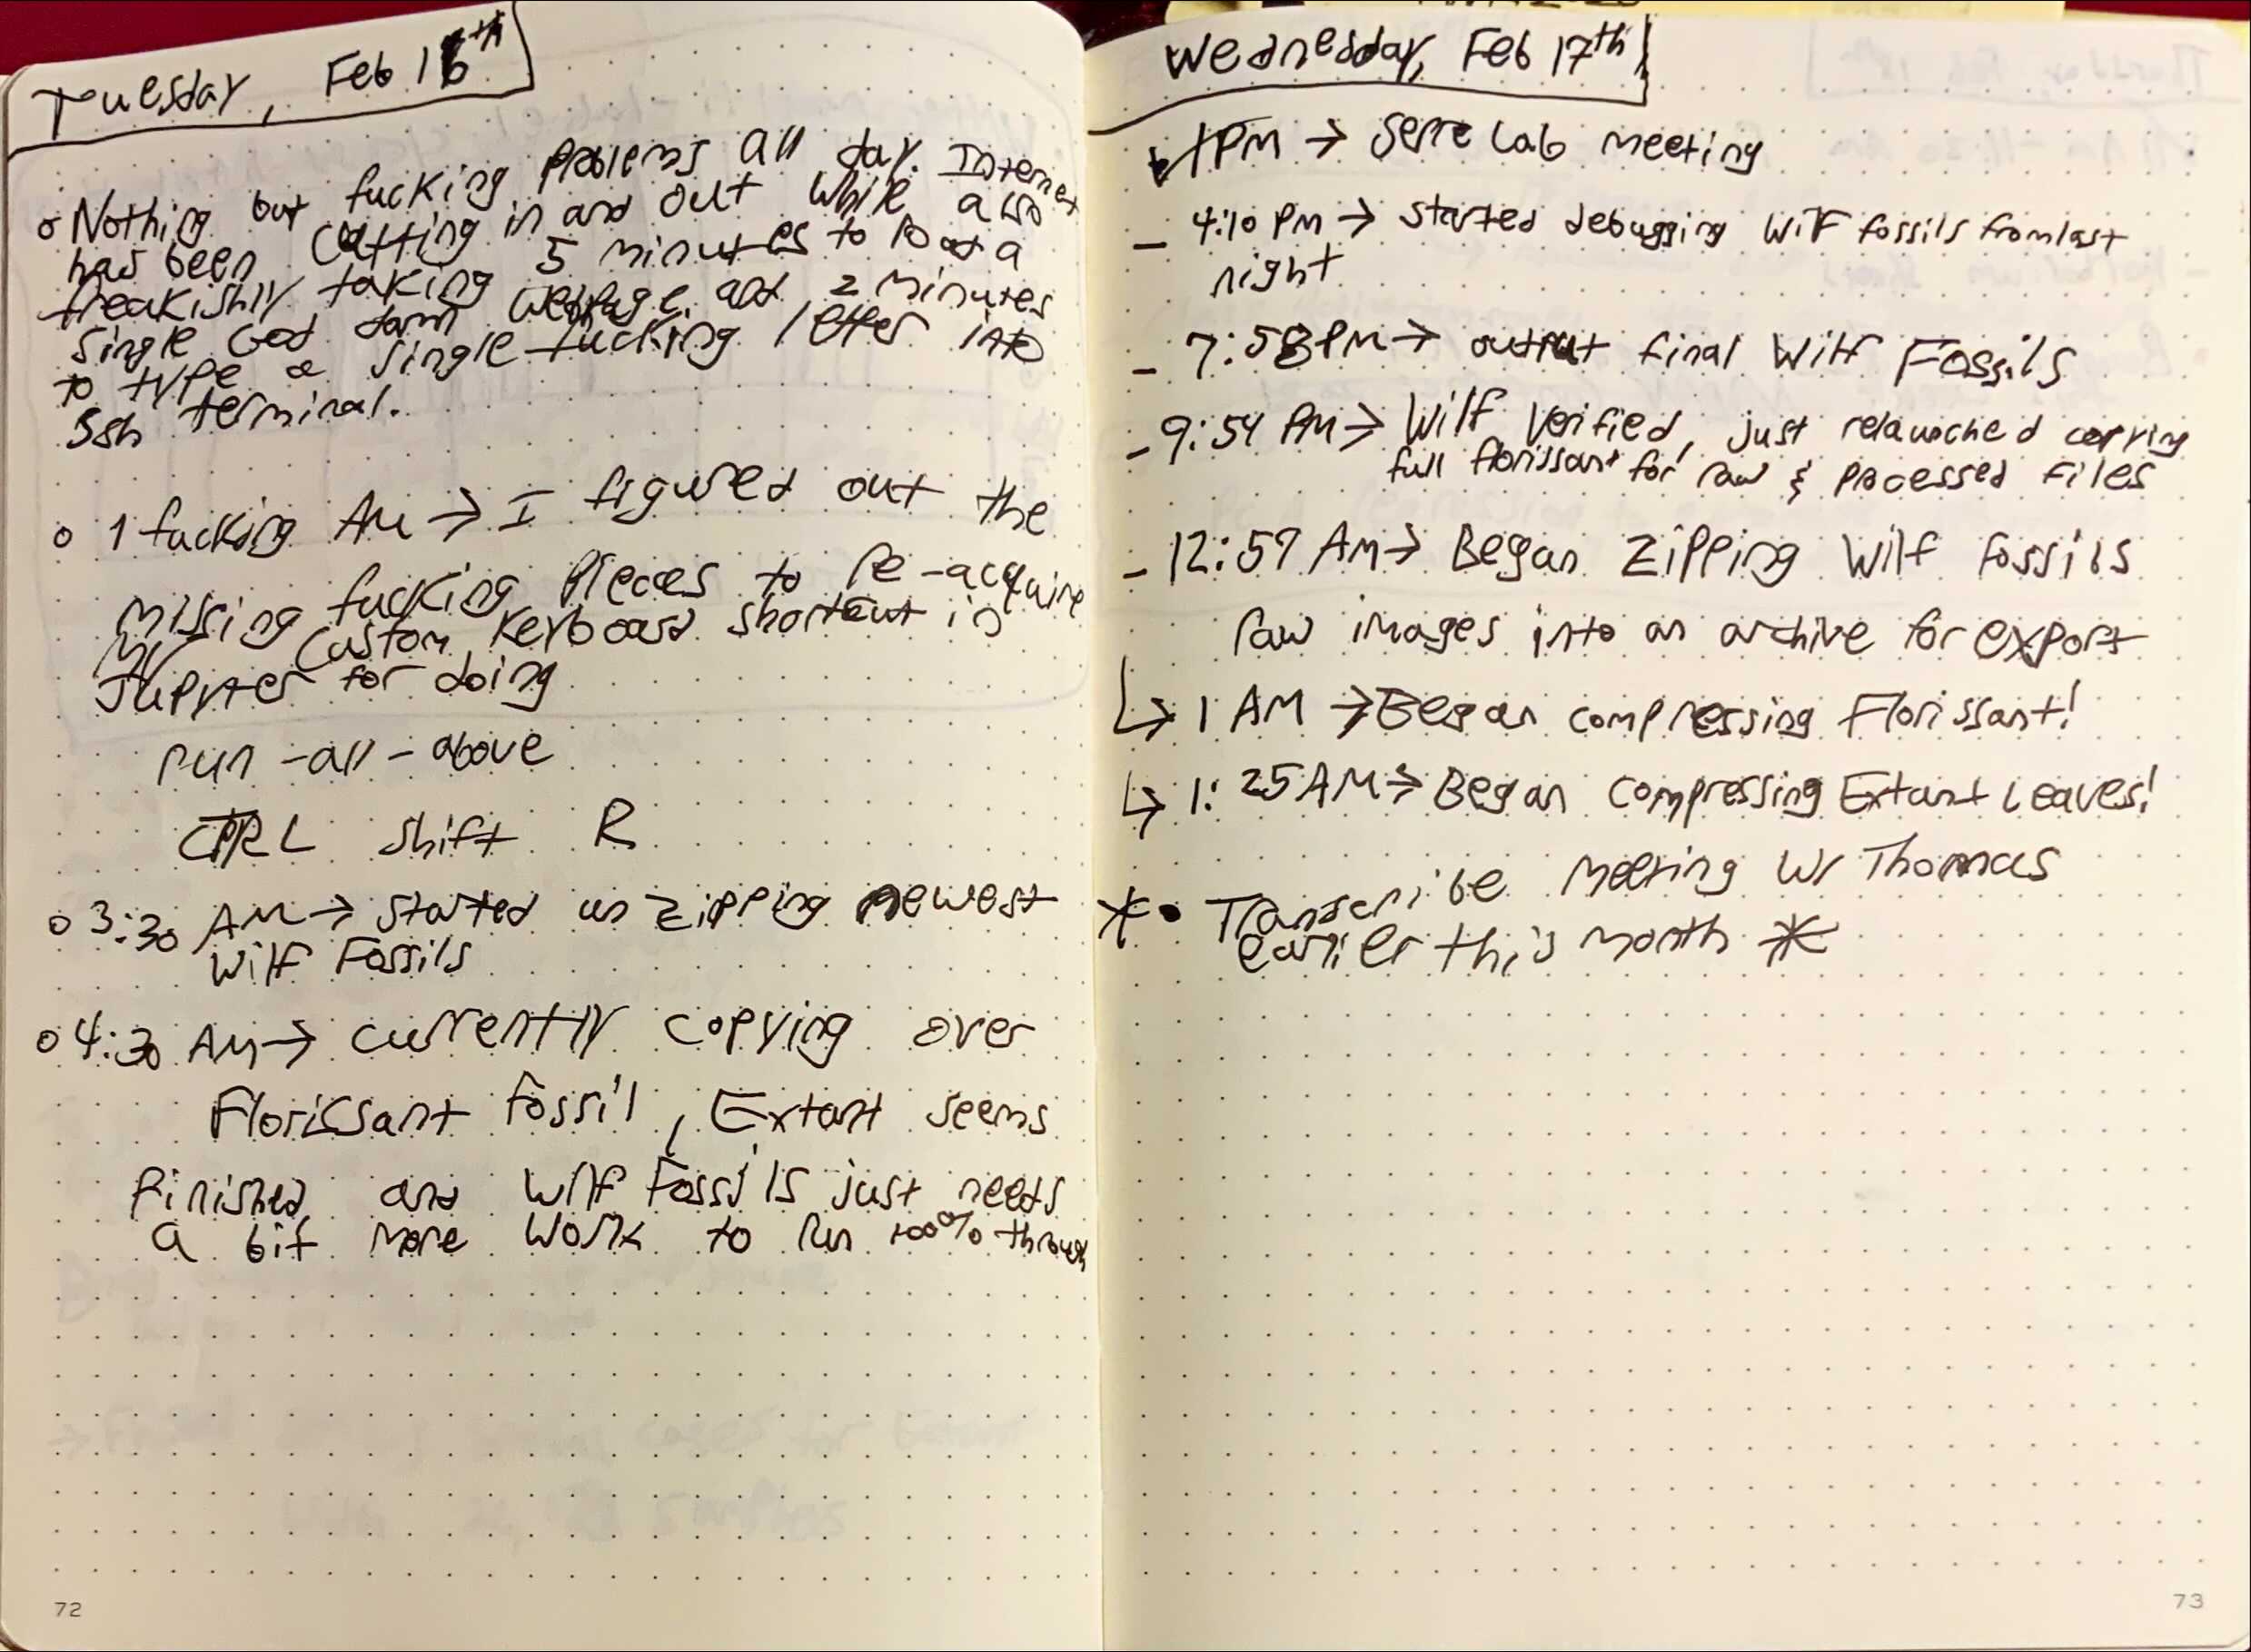 Tuesday, Feb 16th
o Nothing but fucking problems all day. Internet
has been cutting in and out while also
freakishly taking 5 minutes to load a
single God damn webpage, and 2 minutes
to type a single fucking letter into
ssh terminal.
o 1 fucking AM → I figured out the
missing fucking pieces to re-acquire
my custom keyboard shortcut in
Jupyter for doing
run-all-above
CTRL shift R
o 3:30 AM → started un zipping newest
Wilf Fossils
o 4:30 AM → currently copying over
Florissant Fossil, Extant seems
finished and Wilf Fossils just needs
a bit more work to run 100% through
72
Wednesday, Feb 17th
1PM → Serre Lab meeting
- 4:10 PM → started debugging Wilf fossils from last
night
- 7:58 PM → output final Wilf Fossils
- 9:54 PM → Wilf verified, just relaunched copying
full florissant for raw & processed files
- 12:57 AM → Began zipping Wilf fossils
raw images into an archive for export
↳ 1 AM → Began compressing Florissant!
↳ 1:25 AM → Began compressing Extant Leaves!
* • Transcribe meeting w/ Thomas
earlier this month *
73